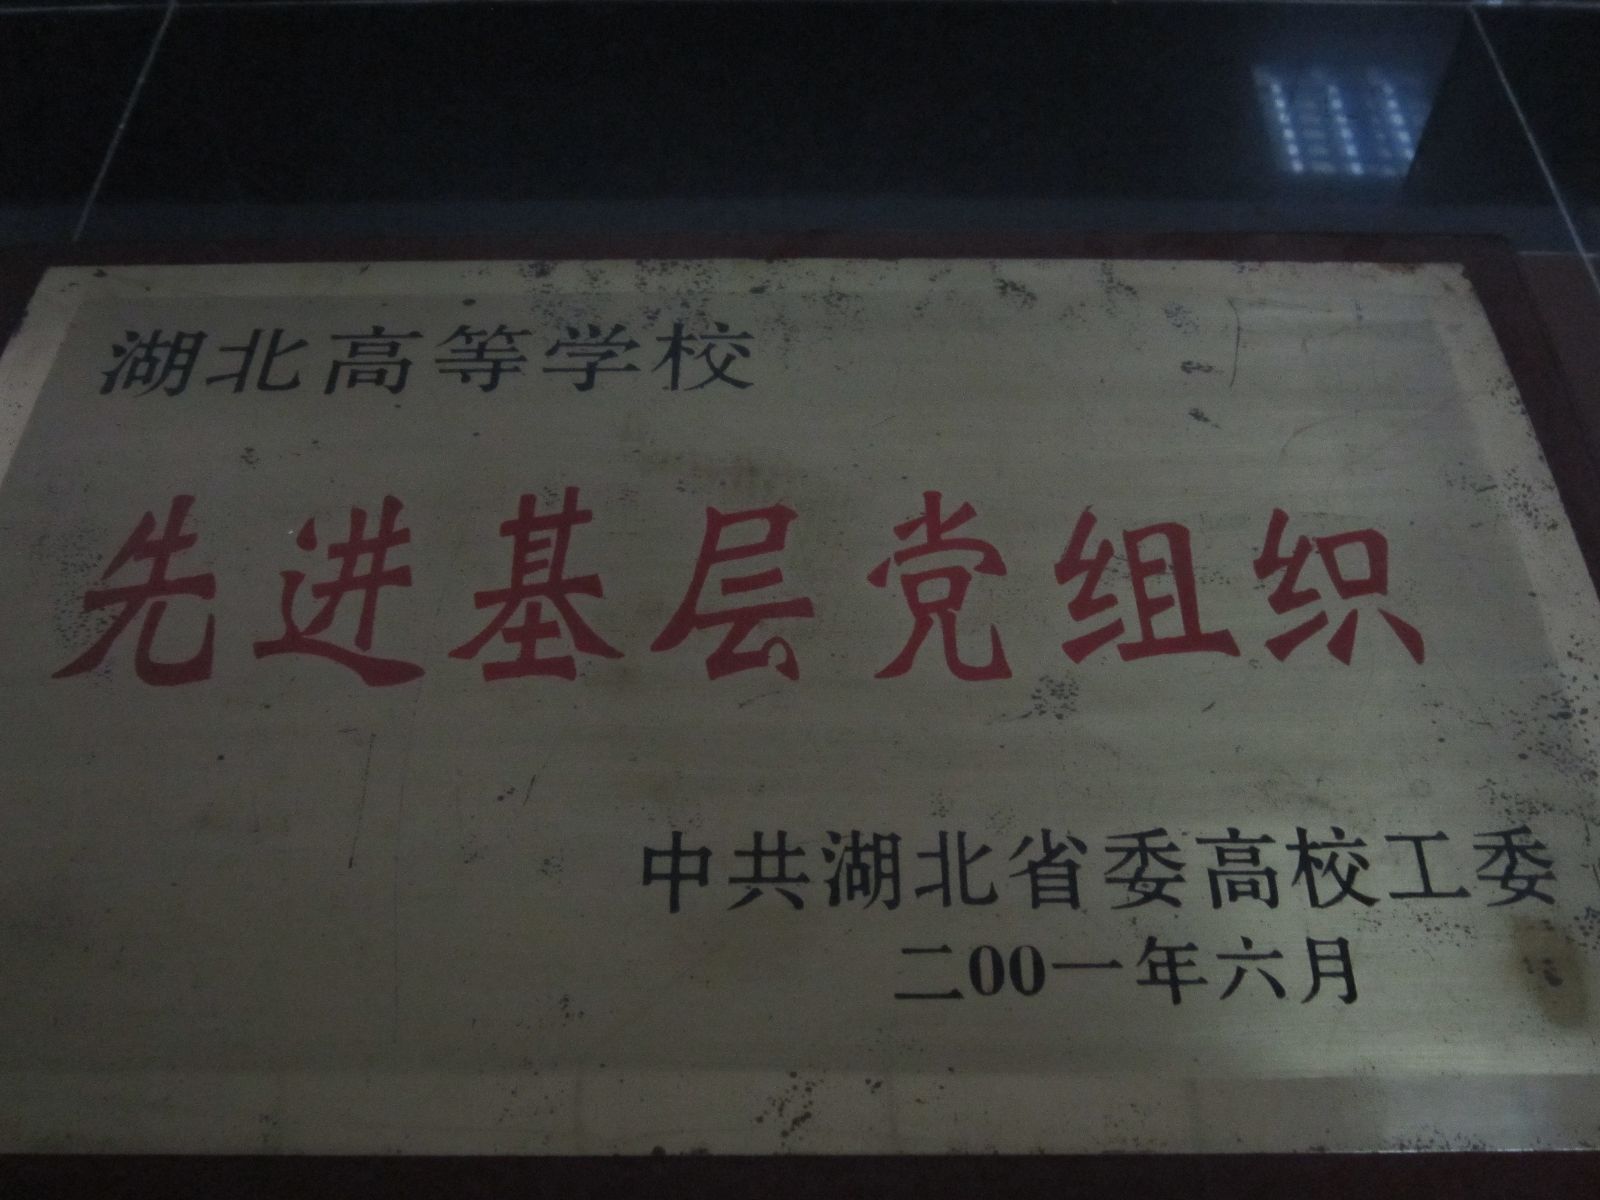 湖北高等学校
先进基层党组织
中共湖北省委高校工委
二00一年六月